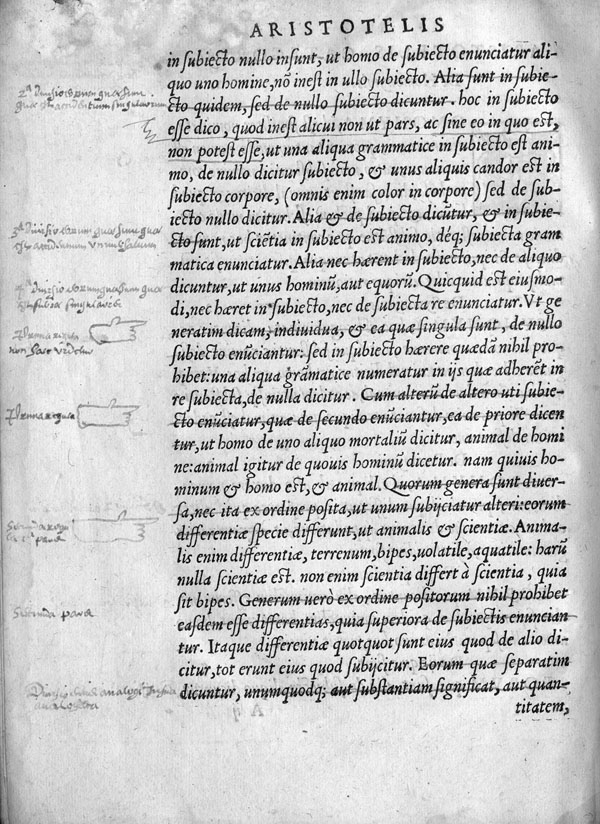 ARISTOTELIS
in subiecto nullo insunt, ut homo de subiecto enunciatur ali-
quo uno homine, nō inest in ullo subiecto. Alia sunt in subie-
cto quidem, sed de nullo subiecto dicuntur. hoc in subiecto
esse dico, quod inest alicui non ut pars, ac sine eo in quo est,
non potest esse, ut una aliqua grammatice in subiecto est ani-
mo, de nullo dicitur subiecto, & unus aliquis candor est in
subiecto corpore, (omnis enim color in corpore) sed de sub-
iecto nullo dicitur. Alia & de subiecto dicūtur, & in subie-
cto sunt, ut sciētia in subiecto est animo, déq; subiecta gram
matica enunciatur. Alia nec hærent in subiecto, nec de aliquo
dicuntur, ut unus hominū, aut equorū. Quicquid est eiusmo-
di, nec hæret in subiecto, nec de subiecta re enunciatur. Vt ge
neratim dicam, indiuidua, & ea quæ singula sunt, de nullo
subiecto enūciantur: sed in subiecto hærere quædā nihil pro-
hibet: una aliqua grāmatice numeratur in ijs quæ adherēt in
re subiecta, de nulla dicitur. Cum alterū de altero uti subie-
cto enūciatur, quæ de secundo enūciantur, ea de priore dicen
tur, ut homo de uno aliquo mortaliū dicitur, animal de homi
ne: animal igitur de quouis hominū dicetur. nam quiuis ho-
minum & homo est, & animal. Quorum genera sunt diuer-
sa, nec ita ex ordine posita, ut unum subijciatur alteri: eorum
differentiæ specie differunt, ut animalis & scientiæ. Anima-
lis enim differentiæ, terrenum, bipes, uolatile, aquatile: harū
nulla scientiæ est. non enim scientia differt à scientia, quia
sit bipes. Generum uerò ex ordine positorum nihil prohibet
easdem esse differentias, quia superiora de subiectis enuncian
tur. Itaque differentiæ quotquot sunt eius quod de alio di-
citur, tot erunt eius quod subijcitur. Eorum quæ separatim
dicuntur, unumquodq; aut substantiam significat, aut quan-
titatem,